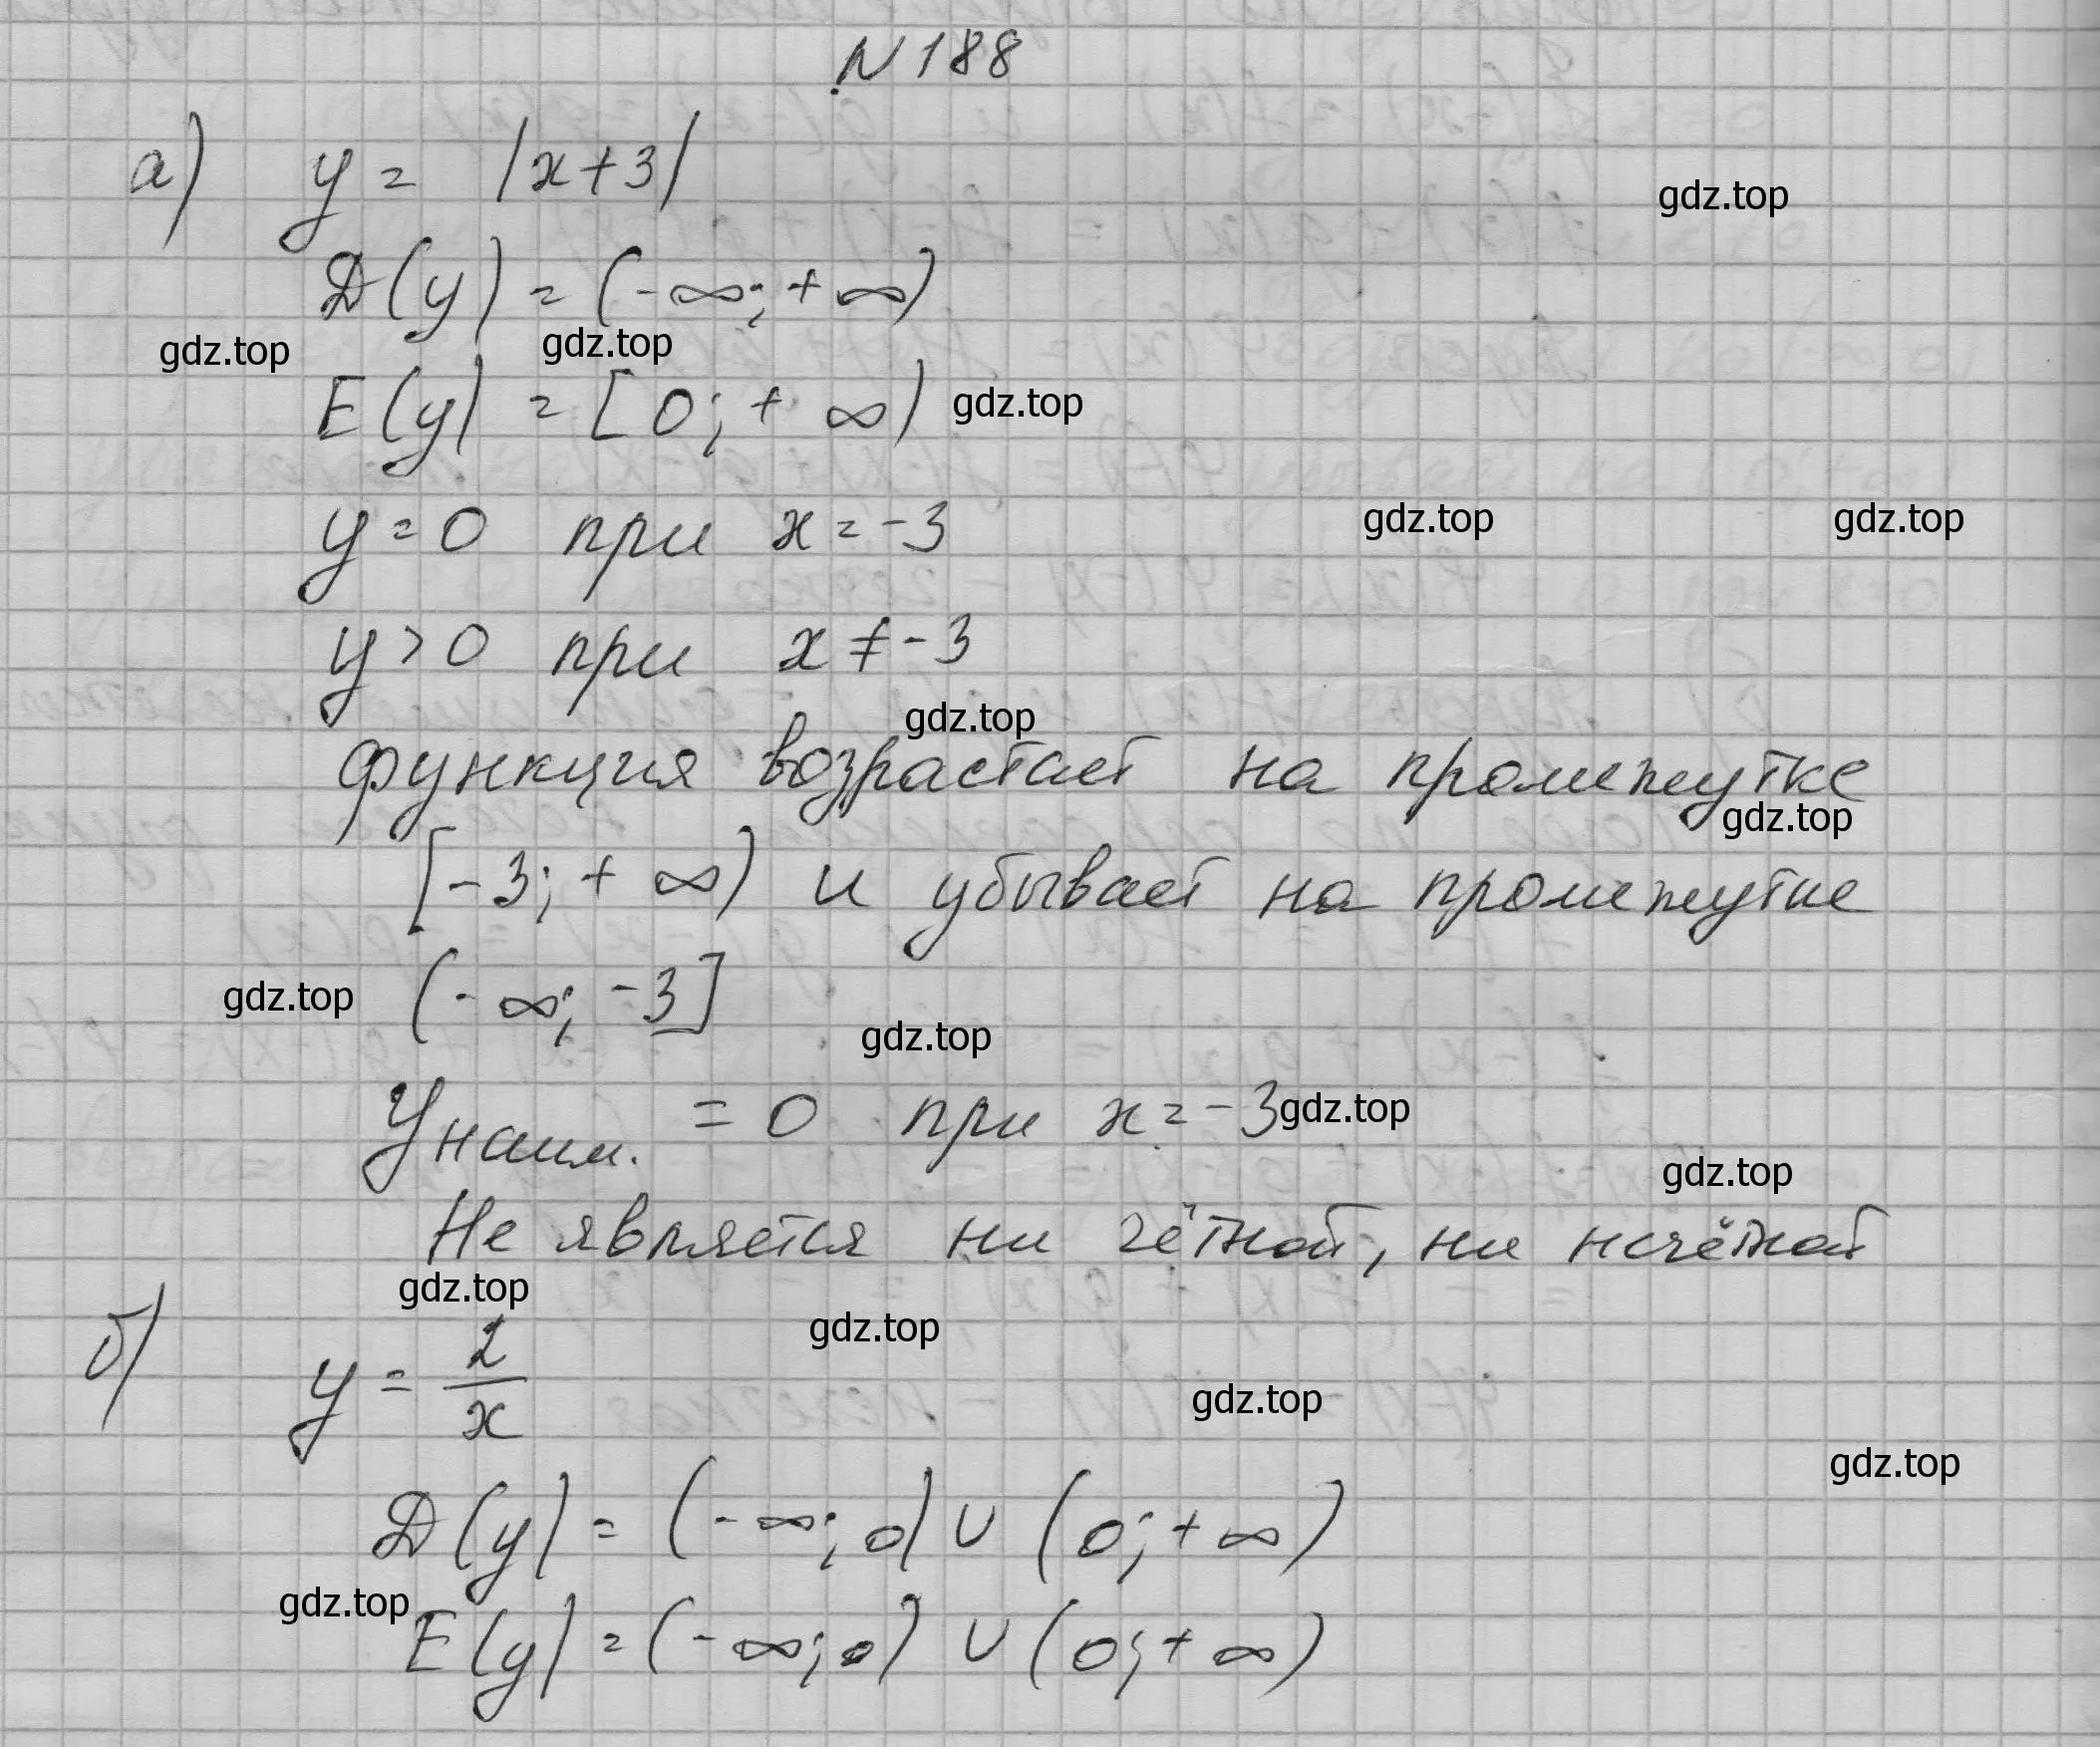 N 188
а) y = |x+3|
gdz.top
D(y) = (-∞; +∞)
gdz.top gdz.top
E(y) = [0; +∞) gdz.top
y = 0 при x = -3 gdz.top gdz.top
y > 0 при x ≠ -3
gdz.top
функция возрастает на промежутке
gdz.top
[-3; +∞) и убывает на промежутке
gdz.top (-∞; -3]
gdz.top
y наим. = 0 при x = -3 gdz.top
gdz.top
Не является ни чётной, ни нечётной
gdz.top
gdz.top
б) y = 2/x
gdz.top
gdz.top
D(y) = (-∞; 0) ∪ (0; +∞)
gdz.top
E(y) = (-∞; 0) ∪ (0; +∞)